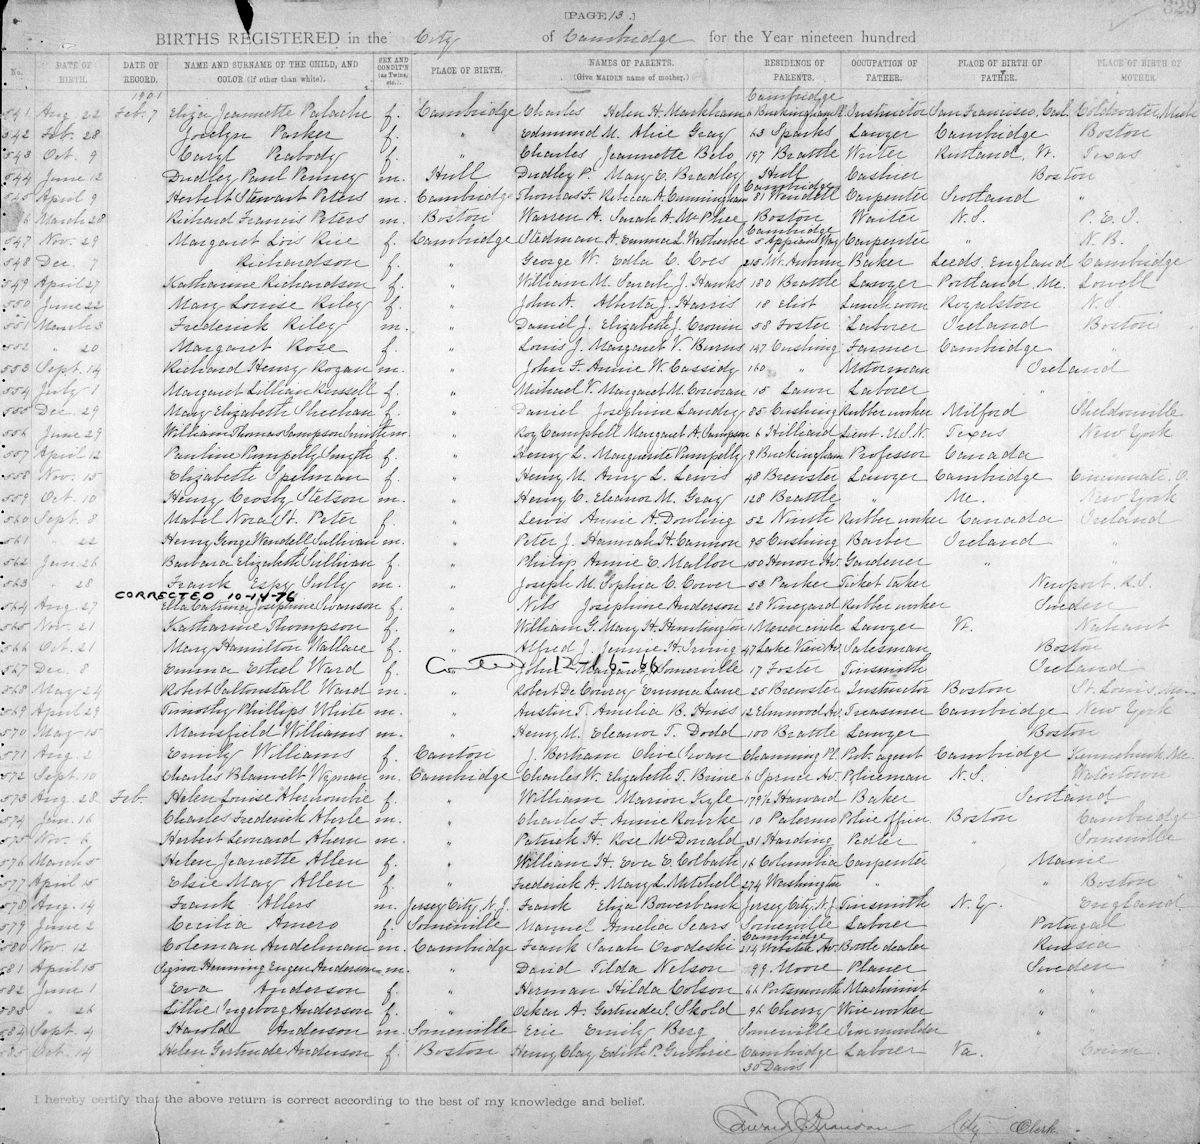 [PAGE 13.]
329
BIRTHS REGISTERED in the City of Cambridge for the Year nineteen hundred
No. DATE OF BIRTH. DATE OF RECORD. NAME AND SURNAME OF THE CHILD, AND COLOR (if other than white). SEX AND CONDIT'N (as Twins, etc.). PLACE OF BIRTH. NAMES OF PARENTS. (Give MAIDEN name of mother.) RESIDENCE OF PARENTS. OCCUPATION OF FATHER. PLACE OF BIRTH OF FATHER. PLACE OF BIRTH OF MOTHER.
1901 Cambridge
541 Aug 22 Feb. 7 Eliza Jeannette Palache f. Cambridge Charles Helen H. Markham 6 Buckingham Pl Instructor San Francisco, Cal. Coldwater, Mich
542 Feb. 28 Jocelyn Parker f. " Edmund M. Alice Gray 63 Sparks Lawyer Cambridge Boston
543 Oct. 9 Caryl Peabody f. " Charles Jeannette Belo 197 Brattle Writer Rutland, Vt. Texas
544 June 12 Dudley Paul Penney m. Hull Dudley P. Mary E. Bradley Hull Cashier Boston
545 April 9 Herbert Stewart Peters m. Cambridge Thomas F. Rebecca A. Cunningham Cambridge 31 Wendell Carpenter Scotland "
546 March 28 Richard Francis Peters m. Boston Warren A. Sarah A. McPhee Boston Waiter N.S. P.E.I.
547 Nov. 29 Margaret Lois Rice f. Cambridge Stedman A. Emma L. Cambridge 5 Appian Way Carpenter " N.B.
548 Dec. 17 Richardson f. " George W. Edla C. Coes 215 Mt. Auburn Baker Leeds, England Cambridge
549 April 27 Katharine Richardson f. " William M. Sarah J. Hanks 180 Brattle Lawyer Portland, Me. Lowell
550 June 22 Mary Louise Riley f. " John A. Alberta J. Harris 18 Eliot Lunch room Royalston N.S.
551 March 3 Frederick Riley m. " Daniel J. Elizabeth J. Cronin 58 Foster Laborer Ireland Boston
552 " 20 Margaret Rose f. " Louis J. Margaret V. Burns 147 Cushing Farmer Cambridge "
553 Sept. 14 Richard Henry Rogan m. " John F. Annie W. Cassidy 160 " Motorman Ireland
554 July 1 Margaret Lillian Russell f. " Michael V. Margaret M. Corcoran 15 Lawn Laborer "
555 Dec. 29 Mary Elizabeth Sheehan f. " Daniel Josephine Landry 85 Cushing Rubber worker Milford Sheldonville
556 June 29 William Thomas Sampson Smith m. " Roy Campbell Margaret A. Sampson 6 Hilliard Lieut. U.S.N. Texas New York
557 April 12 Pauline Pumpelly Smyth f. " Henry L. Marguerite Pumpelly 9 Buckingham Professor Canada "
558 Nov. 15 Elizabeth Spelman f. " Henry M. Amy L. Lewis 48 Brewster Lawyer Cambridge Cincinnati, O.
559 Oct. 10 Henry Crosby Stetson m. " Henry C. Eleanor M. Gray 128 Brattle Me. New York
560 Sept. 8 Mabel Nora St. Peter f. " Lewis Annie A. Dowling 52 Ninth Rubber worker Canada Ireland
561 " 22 Henry George Wendell Sullivan m. " Peter J. Hannah H. Cannon 95 Cushing Barber Ireland "
562 Jan. 26 Barbara Elizabeth Sullivan f. " Philip Annie E. Mallon 150 Huron Av. Gardener "
563 " 28 Frank Espy Sully m. " Joseph M. Sophia C. Cover 53 Parker Ticket taker Newport, R.I.
CORRECTED 10-14-76
564 Aug. 27 Ella Catrina Josephine Swanson f. " Nils Josephine Anderson 28 Vineyard Rubber worker Sweden
565 Nov. 21 Katharine Thompson f. " William G. Mary H. Huntington 1 Mercer circle Lawyer Vt. Nahant
566 Oct. 21 Mary Hamilton Wallace f. " Alfred J. Jennie H. Irving 47 Lake View Av Salesman Boston
567 Dec. 8 Emma Ethel Ward f. Corrected 12-16-66 John Margaret Somerville 17 Foster Tinsmith Ireland
568 May 24 Robert Saltonstall Ward m. " Robert De Courcy Emma Lane 25 Brewster Instructor Boston St. Louis, Mo.
569 April 29 Timothy Phillips White m. " Austin T. Amelia B. Huss 12 Elmwood Av Treasurer Cambridge New York
570 May 15 Mansfield Williams m. " Henry M. Eleanor T. Dodd 100 Brattle Lawyer Boston
571 Aug. 2 Emily Williams f. Canton J. Bertram Olive Swan Channing Pl. Pub. agent Cambridge Kennebunk, Me.
572 Sept. 10 Charles Blauvelt Wyman m. Cambridge Charles W. Elizabeth T. Brine 6 Spruce Av. Policeman N.S. Watertown
573 Aug. 28 Feb. Helen Louise Abercrombie f. " William Marion Kyle 179½ Harvard Baker Scotland
574 Jan. 16 Charles Frederick Aberle m. " Charles F. Annie Rourke 10 Palermo Police officer Boston Cambridge
575 Nov. 6 Herbert Leonard Ahern m. " Patrick H. Rose McDonald 31 Harding Pedler " Somerville
576 March 5 Helen Jeanette Allen f. " William H. Eva E. Colbath 16 Columbia Carpenter Maine
577 April 15 Elsie May Allen f. " Frederick A. Mary L. Mitchell 274 Washington " " Boston
578 Aug. 14 Frank Allers m. Jersey City, N.J. Frank Eliza Bowerbank Jersey City, N.J. Tinsmith N.Y. England
579 June 2 Cecilia Amero f. Somerville Manuel Amelia Sears Somerville Laborer Portugal
580 Nov. 12 Coleman Andelman m. Cambridge Frank Sarah Orodeski Cambridge 214 Webster Av. Boot dealer Russia
581 April 15 Signor Hanning Eugen Anderson m. " David Tilda Nelson 99 Moore Planer Sweden
582 June 1 Eva Anderson f. " Herman Hilda Colson 66 Portsmouth Machinist " "
583 " 26 Lillie Ingeborg Anderson f. " Oskar A. Gertrude S. Skold 96 Cherry Wire worker " "
584 Sept. 4 Harold Anderson m. Somerville Eric Emily Berg Somerville Iron moulder " "
585 Oct. 14 Helen Gertrude Anderson f. Boston Henry Clay Edith P. Guthrie Cambridge Laborer Va.
30 Davis
I hereby certify that the above return is correct according to the best of my knowledge and belief.
Edward J. Brandon City Clerk.